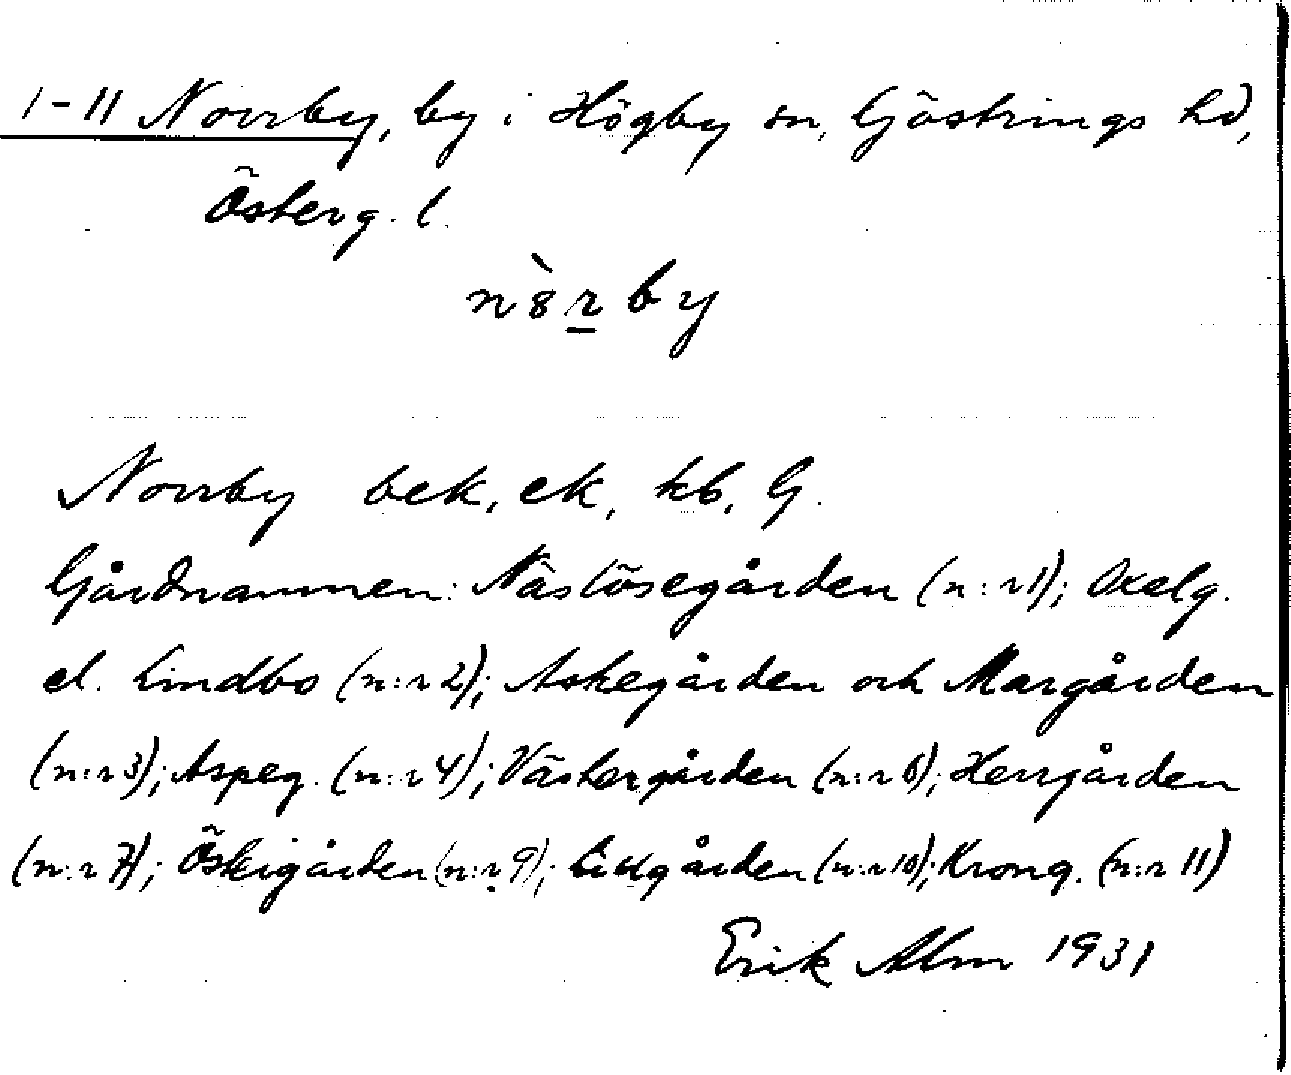 1-11 Norrby, by i Högby sn, Göstrings hd,
Österg. l.
n ȍ r b y
Norrby bek, ek, kb, G.
Gårdnamnen: Näslösegården (n:r 1); Oxelg.
el. Lindbo (n:r 2); Askegården och Margården
(n:r 3); Aspeg. (n:r 4); Västergården (n:r 6); Herrgården
(n:r 7); Östergården (n:r 9); Lillgården (n:r 10); Krong. (n:r 11)
Erik Alm 1931